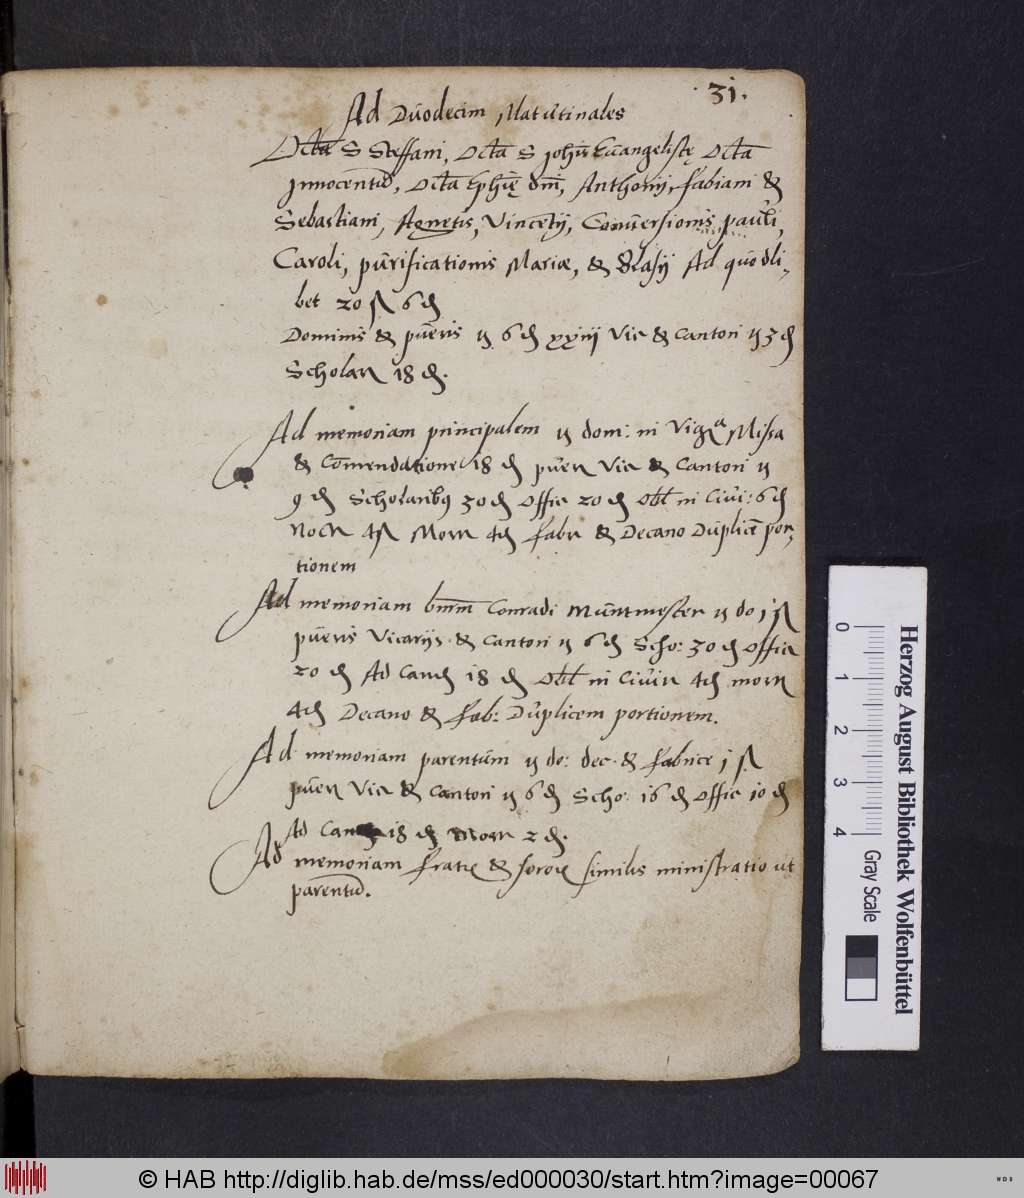 31.
Ad Duodecim Matutinales
Octa S Steffani, Octa S Johis Euangeliste Octa
Innocentu, Octa Ephie dni, Anthonij, Fabiani &
Sebastiani, Agnetis, Vincetij, Conuersionis pauli,
Caroli, purificationis Mariæ, & Blasij Ad quodli,
bet 20 ß 6 ₰
Dominis & pueris ij 6 ₰ xxiiij Vic & Cantori ij 3 ₰
Scholar 18 ₰.
Ad memoriam principalem ij domi: in Vigia Missa
& Comendatione 18 ₰ puer Vic & Cantori ij
9 ₰ Scholaribus 30 ₰ Offic 20 ₰ Obl in Ciui: 6 ₰
4 ß 4 ₰ Fabr & Decano Duplice por,
tionem
Ad memoriam Conradi Muntmester ij do 1 ß
pueris Vicarijs & Cantori ij 6 ₰ Scho: 30 ₰ Offic
20 ₰ Ad Cam 18 ₰ Obl in Ciuir 4 ₰
4 ₰ Decano & Fab: Duplicem portionem.
Ad memoriam parentum ij do: dec. & Fabrice 1 ß
puer Vic & Cantori ij 6 ₰ Scho: 16 ₰ Offic 10 ₰
Ad 18 ₰ 2 ₰.
Ad memoriam Fratr & soror similis ministratio ut
parentu.
Herzog August Bibliothek Wolfenbüttel
0 1 2 3 4 Gray Scale
© HAB http://diglib.hab.de/mss/ed000030/start.htm?image=00067